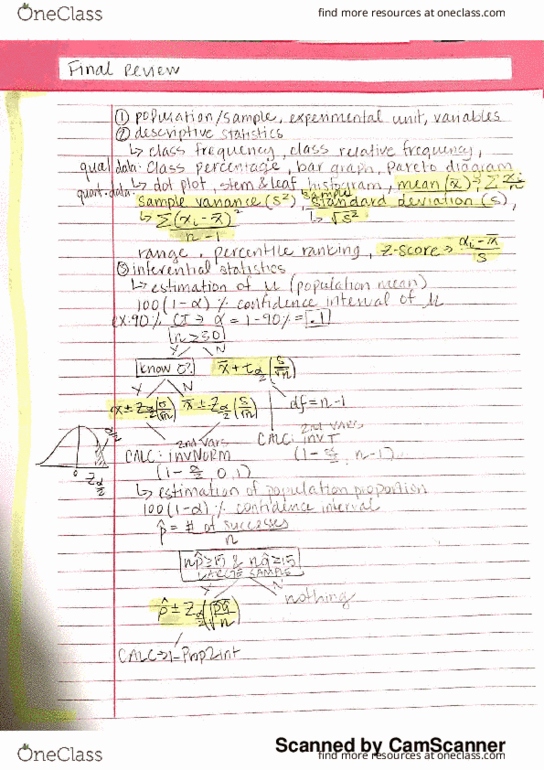 OneClass
find more resources at oneclass.com
Final Review
① population/sample, experimental unit, variables
② descriptive statistics
↳ class frequency, class relative frequency,
qual data: class percentage, bar graph, pareto diagram
quant data: ↳ dot plot, stem & leaf, histogram, mean (x̄) = Σxᵢ/n
sample variance (s²), sample standard deviation (s),
↳ Σ(xᵢ-x̄)²/n-1 ↳ √s²
range, percentile ranking, z-score → xᵢ-x̄/s
③ inferential statistics
↳ estimation of μ (population mean)
100(1-α)% confidence interval of μ
ex: 90% CI → α = 1-90% = .1
n≥30
Y N
know σ? x̄ ± t α/2 (s/√n)
Y N
x̄ ± Z α/2 (σ/√n) x̄ ± Z α/2 (s/√n) df = n-1
α/2
0 Z α/2
2nd vars
CALC: invNORM
(1-α/2, 0, 1)
2nd vars
CALC: invT
(1-α/2, n-1)
↳ estimation of population proportion
100(1-α)% confidence interval
p̂ = # of successes/n
np̂≥15 & nq̂≥15
LARGE SAMPLE
Y N
nothing
p̂ ± Z α/2 (√p̂q̂/n)
CALC → 1-PropZint
Scanned by CamScanner
OneClass
find more resources at oneclass.com